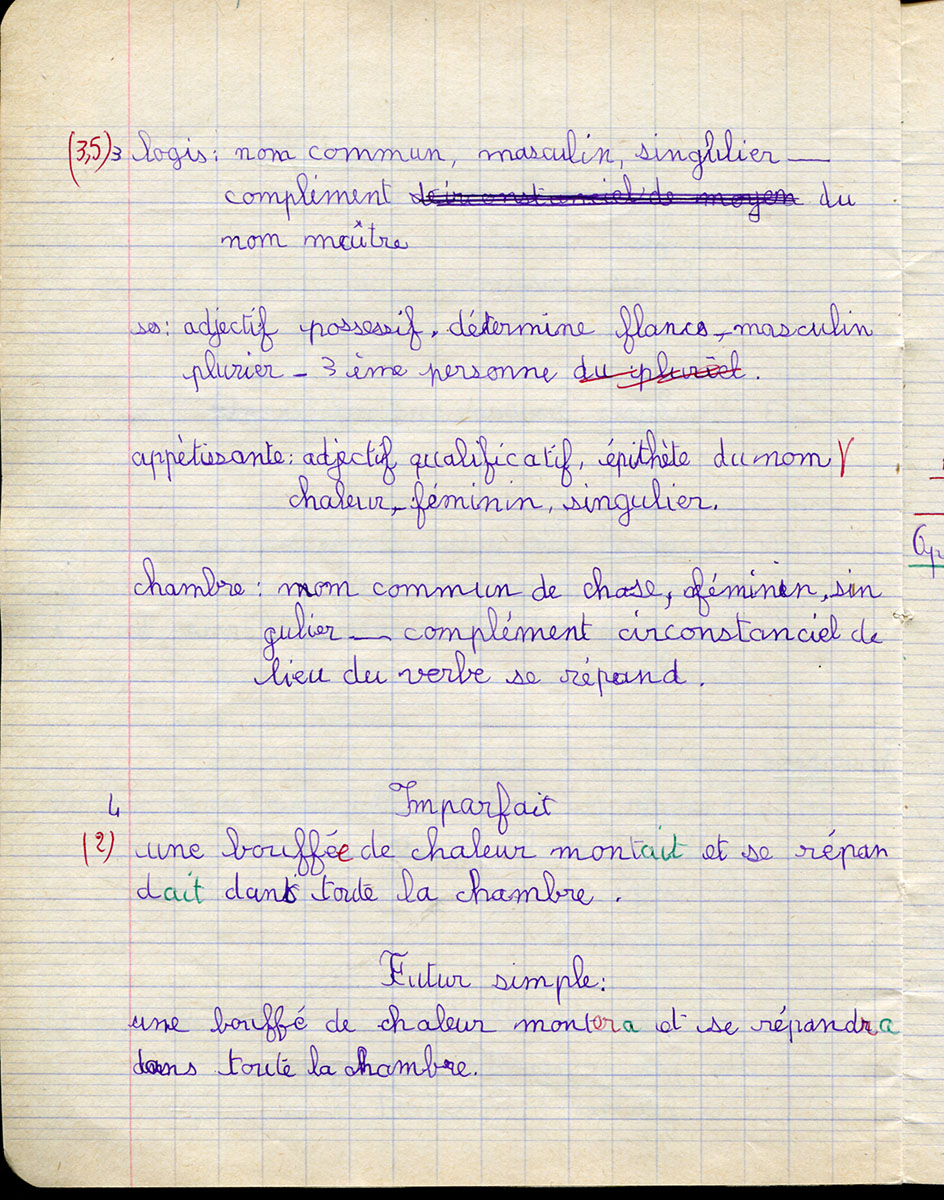 (3,5) 3 logis : nom commun, masculin, singulier —
complément de circonstanciel de moyen du
nom maître
ses : adjectif possessif, détermine flancs - masculin
plurier - 3 ième personne du pluriel.
appétissante : adjectif qualificatif, épithète du nom
chaleur - féminin, singulier.
chambre : nom commun de chose, féminin, sin
gulier — complément circonstanciel de
lieu du verbe se répand.
4 Imparfait
(2) une bouffée de chaleur montait et se répan
dait dans toute la chambre.
Futur simple :
une bouffé de chaleur montera et se répandra
dans toute la chambre.